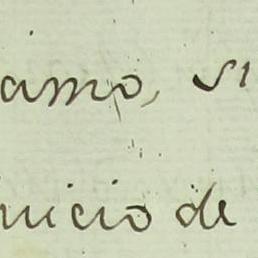 amo, si
nicio de